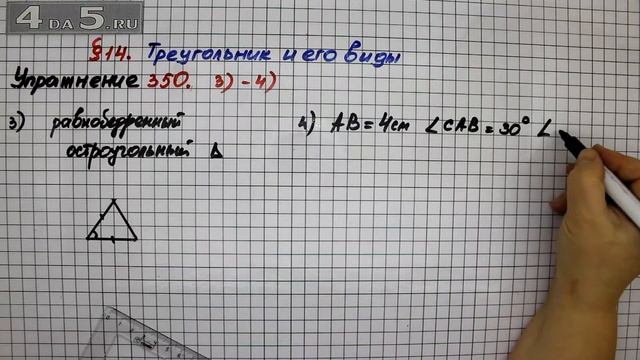 4 DA 5.RU
§14. Треугольник и его виды
Упражнение 350. 3)-4)
3) равнобедренный остроугольный Δ
4) AB = 4см ∠CAB = 90° ∠